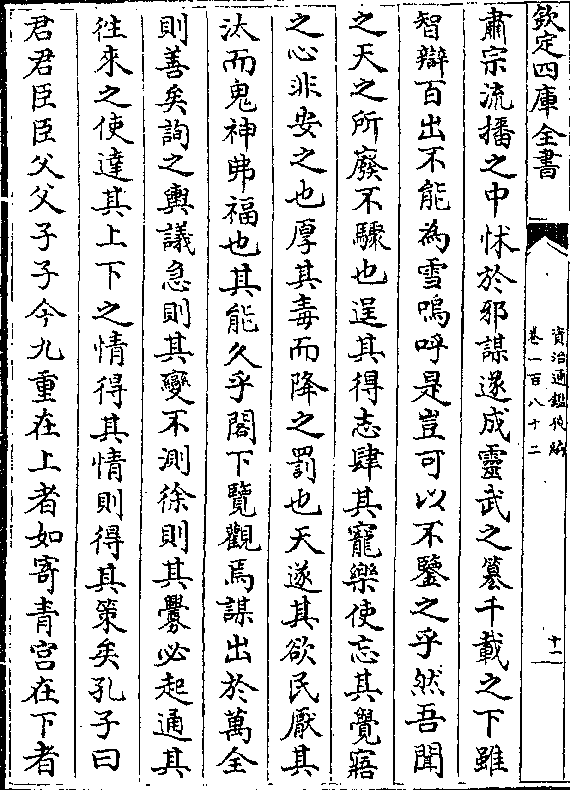 欽定四庫全書
資治通鑑後編
卷一百八十二
十一
肅宗流播之中怵於邪謀遂成靈武之簒千載之下雖
智辯百出不能為雪嗚呼是豈可以不鑒之乎然吾聞
之天之所廢不驟也逞其得志肆其寵樂使忘其覺寤
之心非安之也厚其毒而降之罰也天遂其欲民厭其
汰而鬼神弗福也其能久乎閣下覽觀焉謀出於萬全
則善矣詢之輿議急則其變不測徐則其釁必起通其
徃來之使達其上下之情得其情則得其策矣孔子曰
君君臣臣父父子子今九重在上者如寄青宫在下者